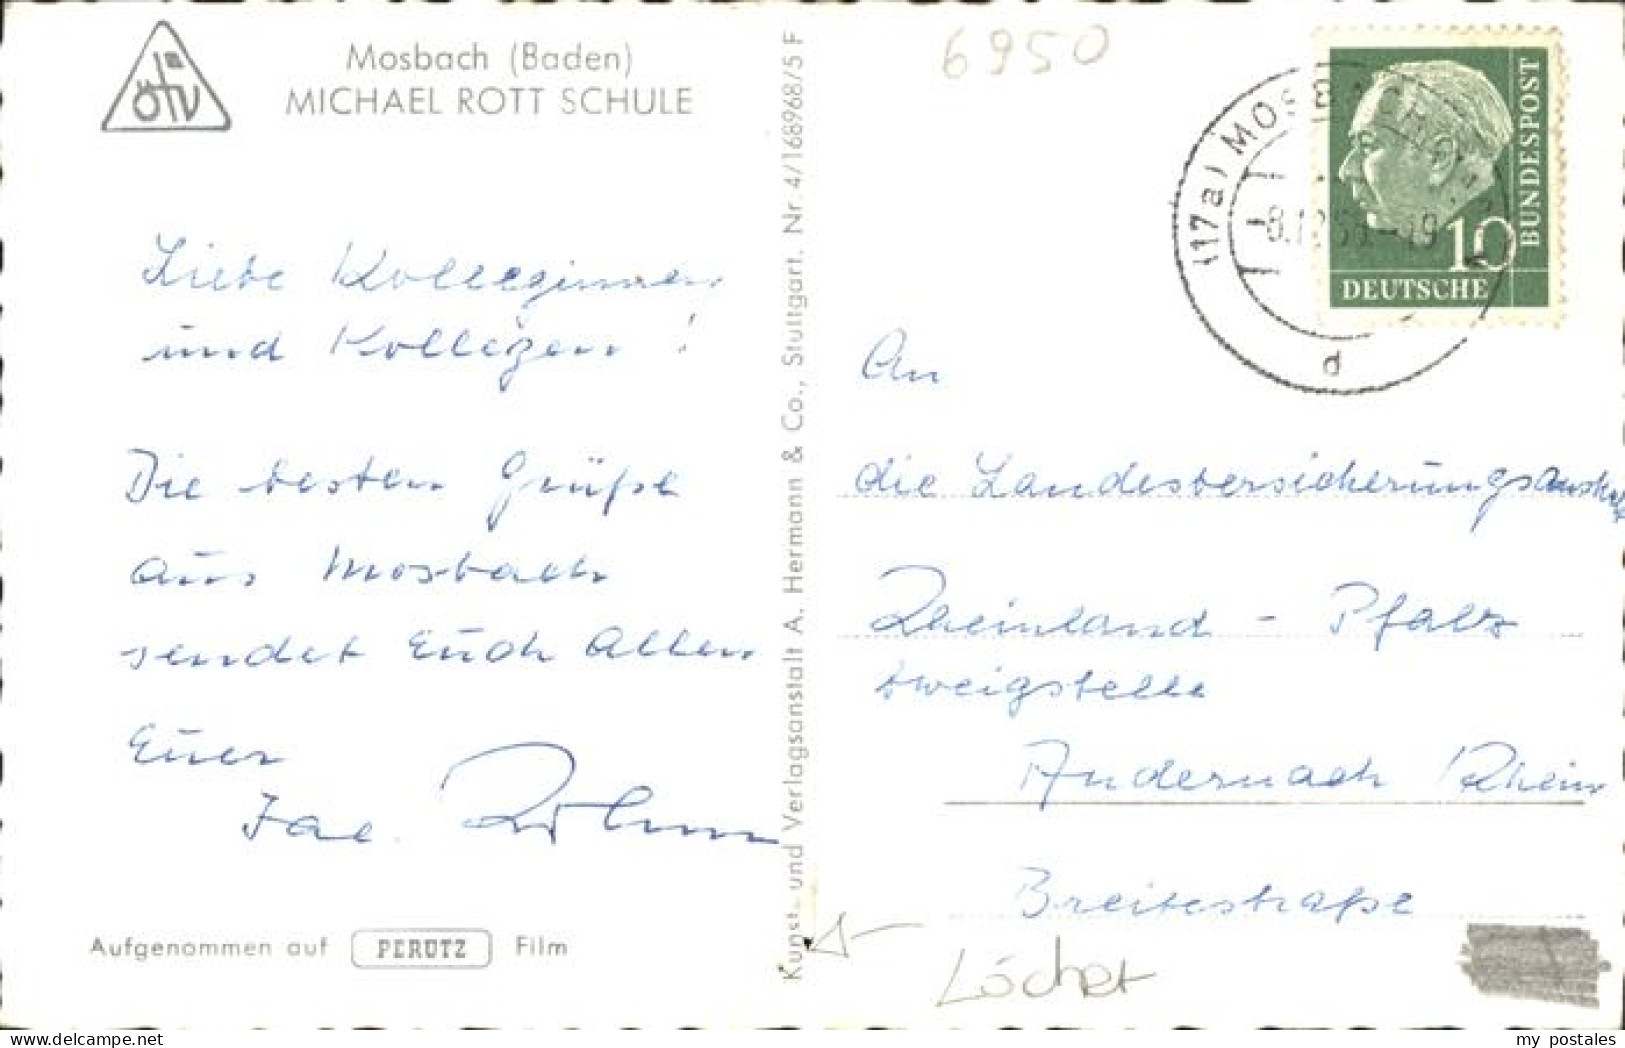 ötv
Mosbach (Baden)
MICHAEL ROTT SCHULE
Liebe Kolleginnen
und Kollegen !
Die besten Grüße
aus Mosbach
sendet Euch Allen
Euer
Jac.
Aufgenommen auf PERUTZ Film
Kunst- und Verlagsanstalt A. Hermann & Co., Stuttgart. Nr. 4/168968/5 F
6950
(17a) MOSBACH
d
10
DEUTSCHE
BUNDESPOST
An
die Landesversicherungsanstalt
Rheinland - Pfalz
Zweigstelle
Andernach Rhein
Breitestraße
Löcher
my postales